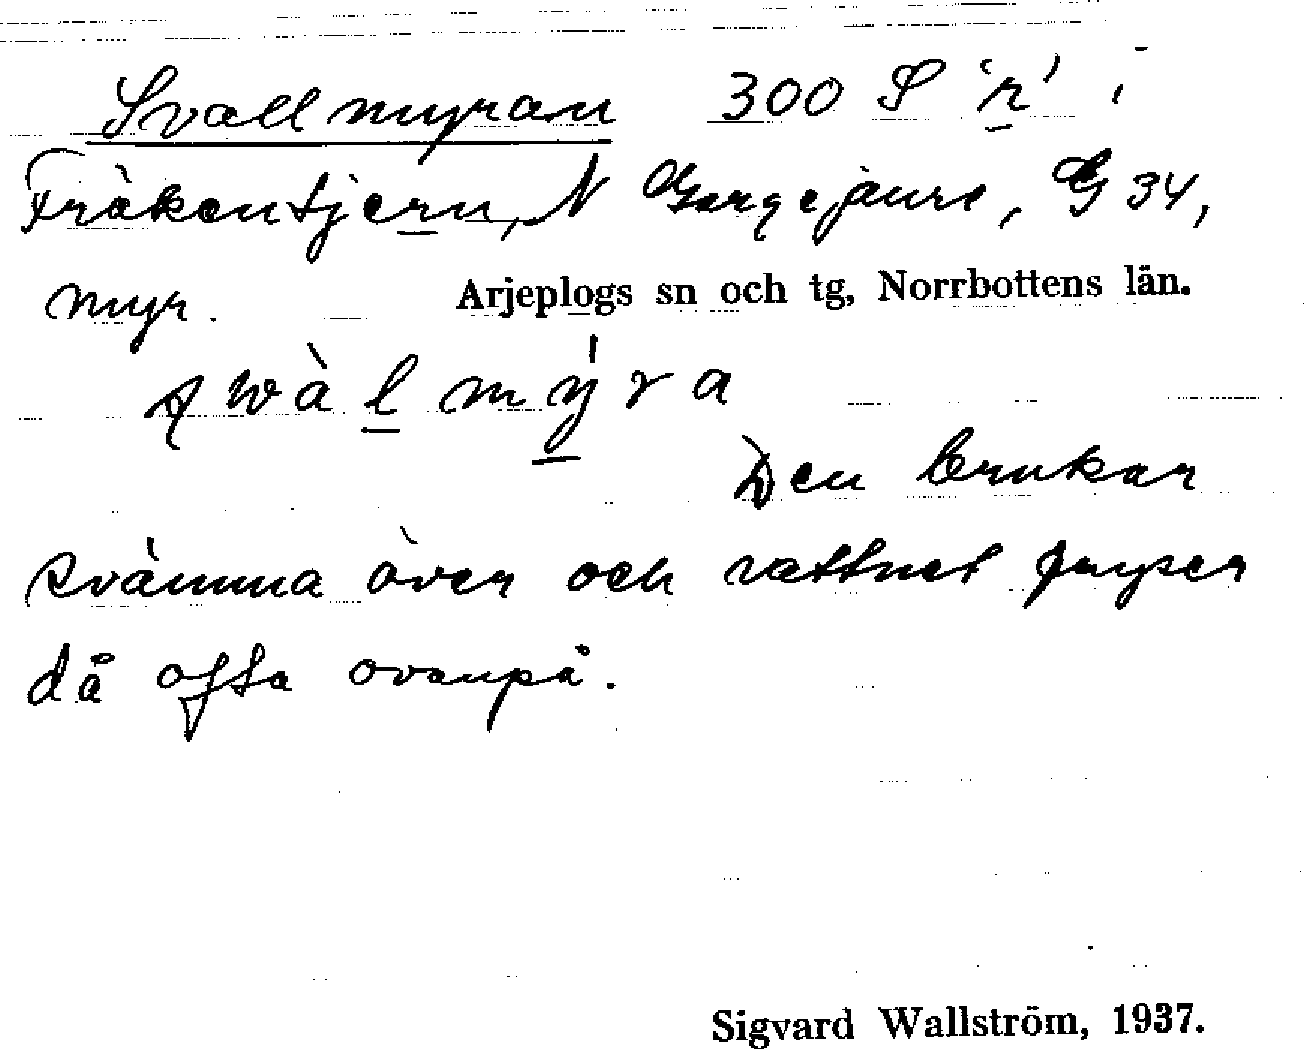 Svallmyran 300 S 'r' i
Fräkentjern, N Gargejaure, G 34,
myr. Arjeplogs sn och tg, Norrbottens län.
swàlmýra
Den brukar
svämma över och vattnet fryser
då ofta ovanpå.
Sigvard Wallström, 1937.